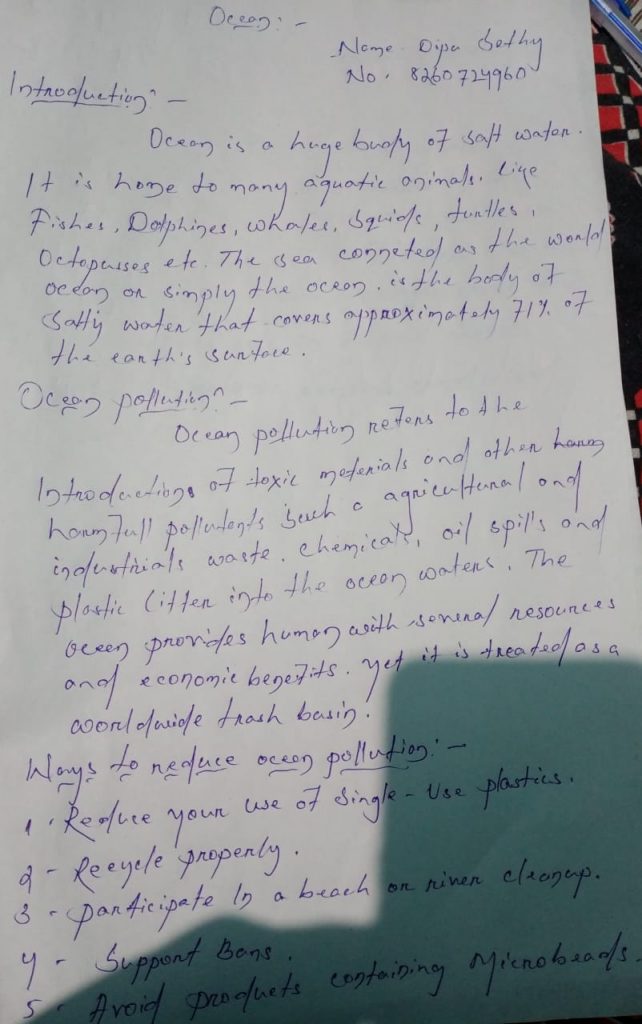 Ocean :-
Name - Dipa Sethy
No. 8260724960
Introduction :-
Ocean is a huge buody of salt water.
It is home to many aquatic animals. like
Fishes, Dolphines, whales, Squids, turtles,
Octopusses etc. The sea conneted as the world
ocean or simply the ocean. is the body of
Salty water that covers approximately 71% of
the earth's surface.
Ocean pollution :-
Ocean pollution refers to the
Introductions of toxic meterials and other harm
harmfull pollutents such a agricultural and
industrials waste. chemicals, oil spills and
plastic litter into the ocean waters. The
oceen provides human with several resources
and economic benefits. yet it is treated as a
worldwide trash basin.
Ways to reduce ocean pollution :-
1. Reduce your use of Single-Use plastics.
2 - Recycle properly.
3 - participate In a beach or river cleanup.
4 - Support Bans.
5 - Avoid products containing Microbeads.